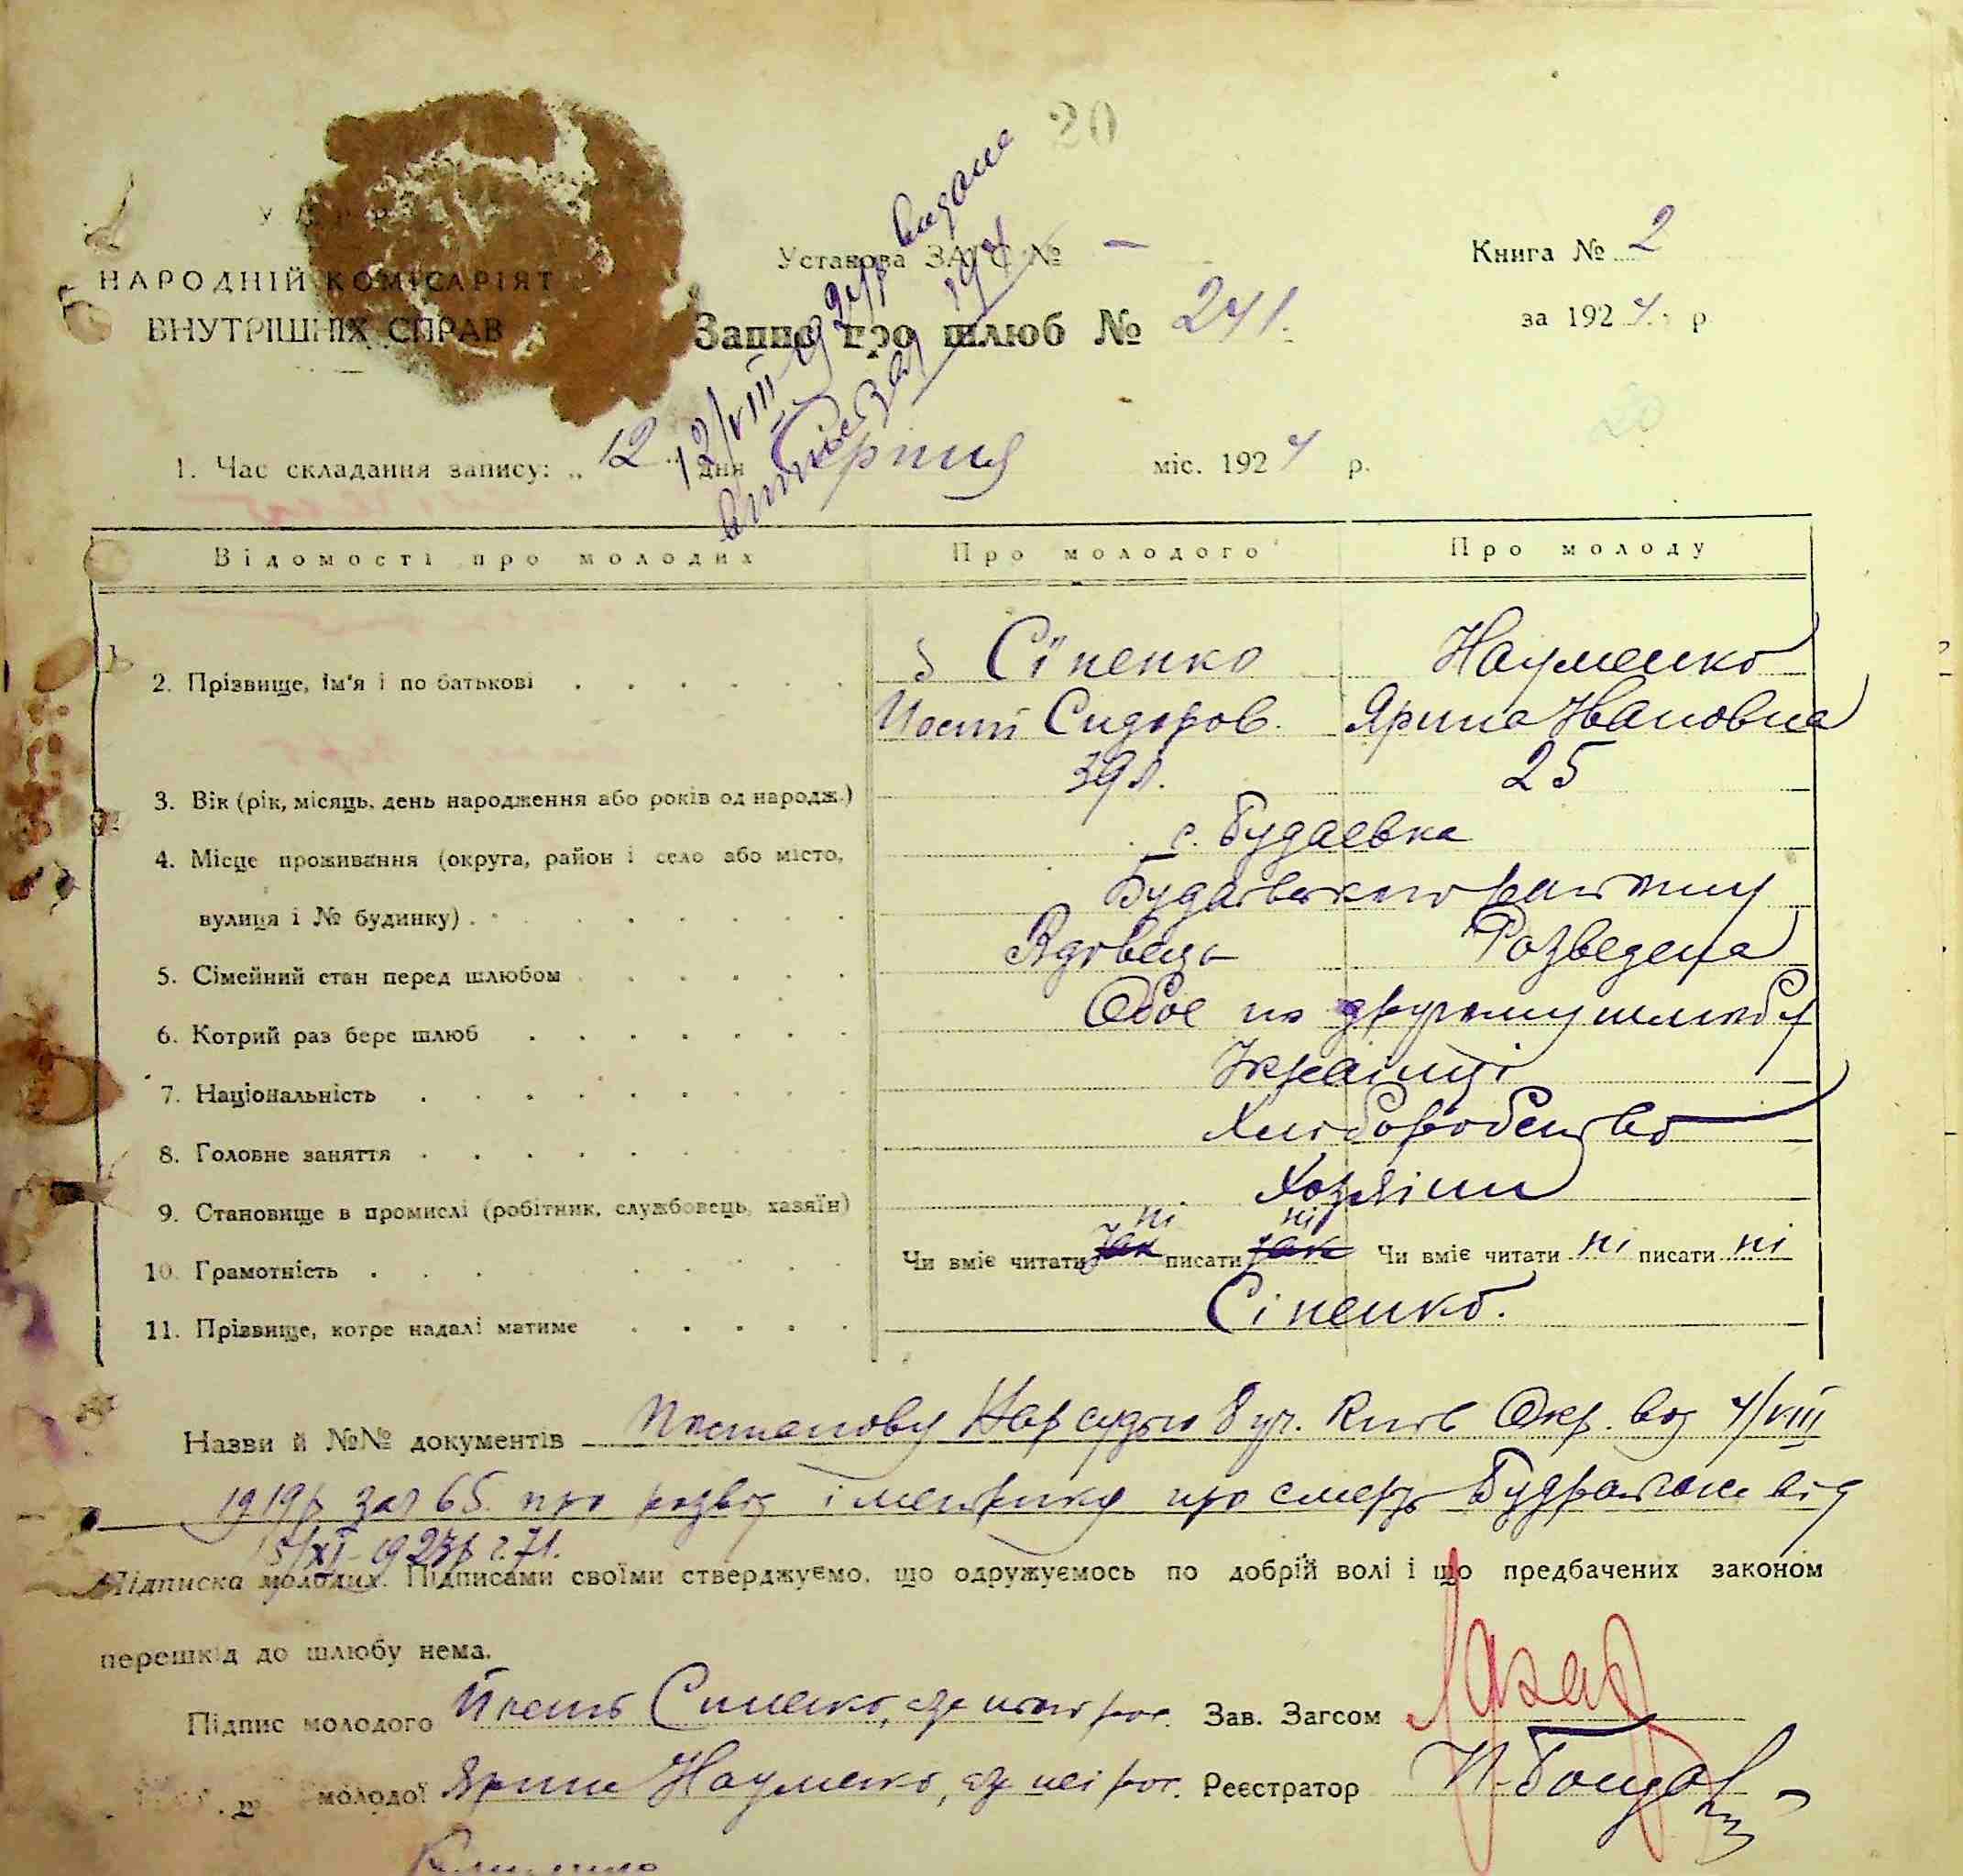 20
НАРОДНІЙ КОМІСАРІЯТ
ВНУТРІШНІХ СПРАВ
Установа ЗАГС № —
Книга № 2
за 1924 р
Запис про шлюб № 241.
12/VIII 1924р видане
1. Час складання запису: „ 12 „ дня Серпня міс. 1924 р.
Відомості про молодих Про молодого Про молоду
2. Прізвище, ім'я і по батькові Сіпенко Науменко
Сидоров. Ярина Івановна
3. Вік (рік, місяць, день народження або років од народж.) 39 л. 25
4. Місце проживання (округа, район і село або місто, с. Будаевка
вулиця і № будинку) Будаївського району
5. Сімейний стан перед шлюбом Вдовець Розведена
6. Котрий раз бере шлюб Обоє по другому шлюбу
7. Національність Українці
8. Головне заняття Хліборобство
9. Становище в промислі (робітник, службовець, хазяїн) Хозяіни
10. Грамотність Чи вміє читати так ні писати так ні Чи вміє читати ні писати ні
11. Прізвище, котре надалі матиме Сіпенко.
Назви й №№ документів Постанову Нарсудью 8 уч. Київ Окр. від 4/VIII
1919р за № 65. про розвід і метрику про смерть від
5/XI - 1923р г. 71.
Підписка молодих. Підписами своїми стверджуємо, що одружуємось по добрій волі і що предбачених законом
перешкід до шлюбу нема.
Підпис молодого Зав. Загсом
молодої Ярина Науменко, Реєстратор